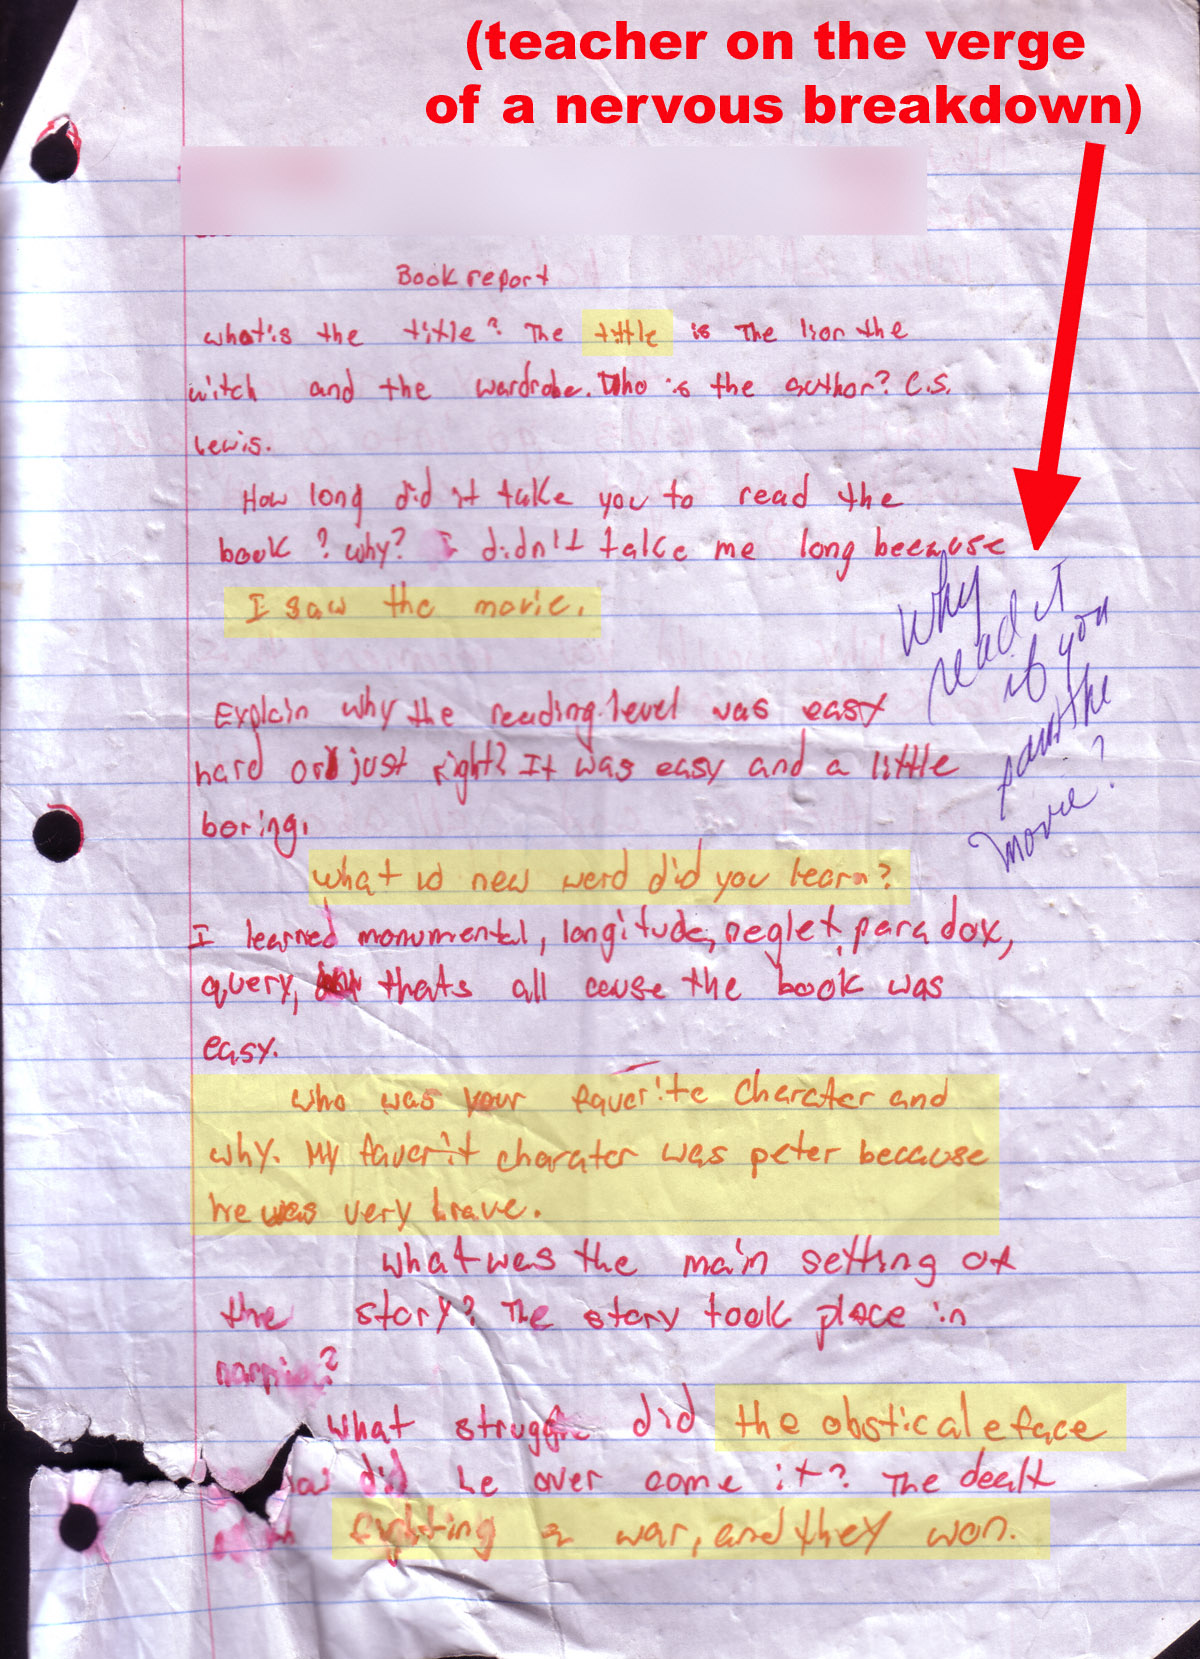 (teacher on the verge
of a nervous breakdown)
Book report
what's the title? The tittle is The lion the
witch and the wardrobe. Who is the author? C.S.
Lewis.
How long did it take you to read the
book? why? I didn't take me long because
I saw the movie.
why
read it
if you
saw the
movie?
Explain why the reading level was easy
hard or just right? It was easy and a little
boring.
what new werd did you learn?
I learned monumental, longitude, neglet, paradox,
query, thats all cause the book was
easy.
who was your faverite charater and
why. My faverit charater was peter because
he was very brave.
what was the main setting of
the story? The story took place in
narnia?
What struggle did the obsticale face
did he over come it? The dealt
fighting a war, and they won.